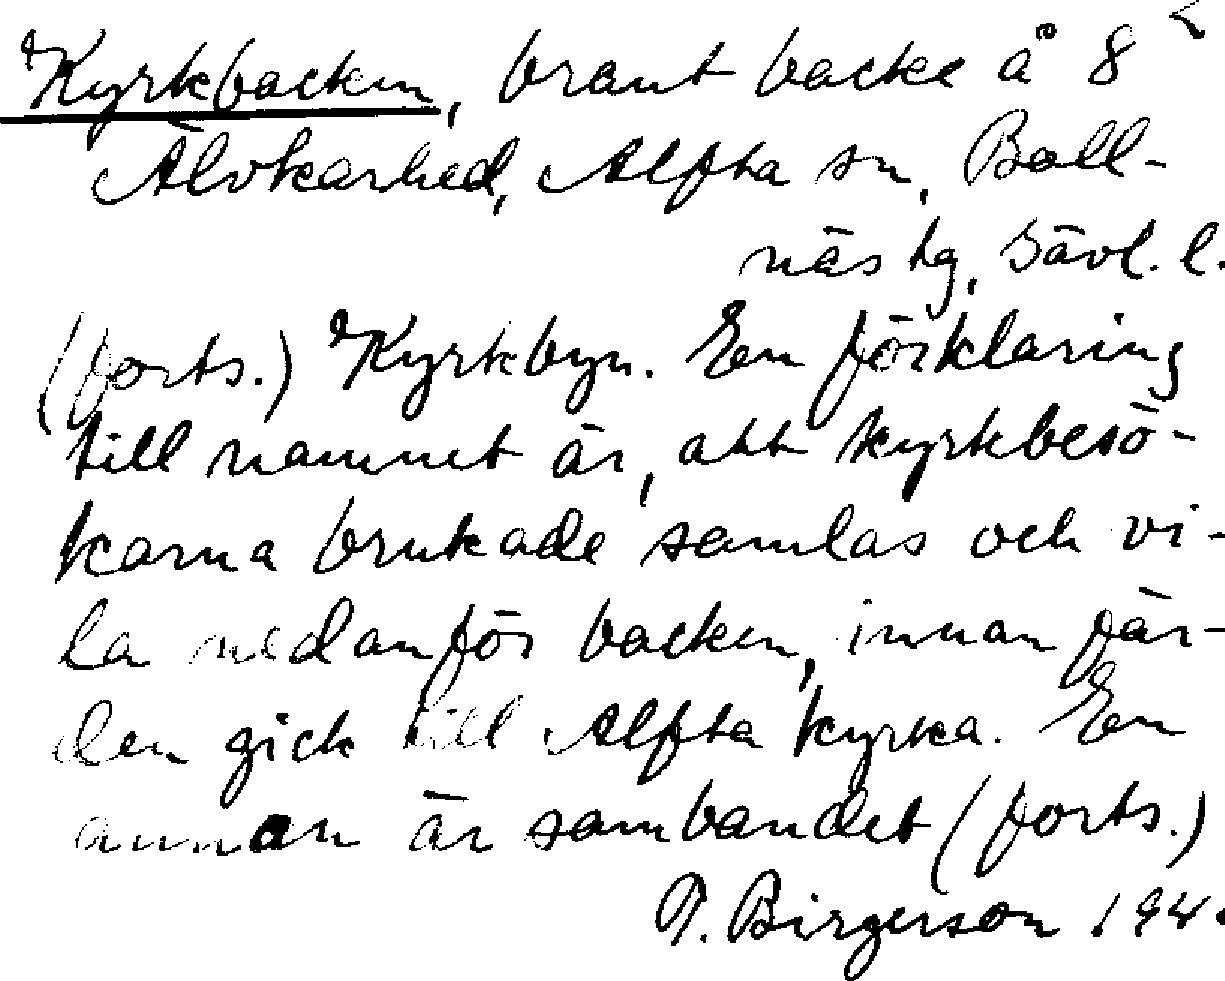 Kyrkbacken, brant backe å 8
Älvkarhed, Alfta sn, Boll-
näs tg, Gävl. l.
(forts.) Kyrkbyn. En förklaring
till namnet är, att kyrkbesö-
karna brukade samlas och vi-
la nedanför backen, innan fär-
den gick till Alfta kyrka. En
annan är sambandet (forts.)
P. Birgerson 194